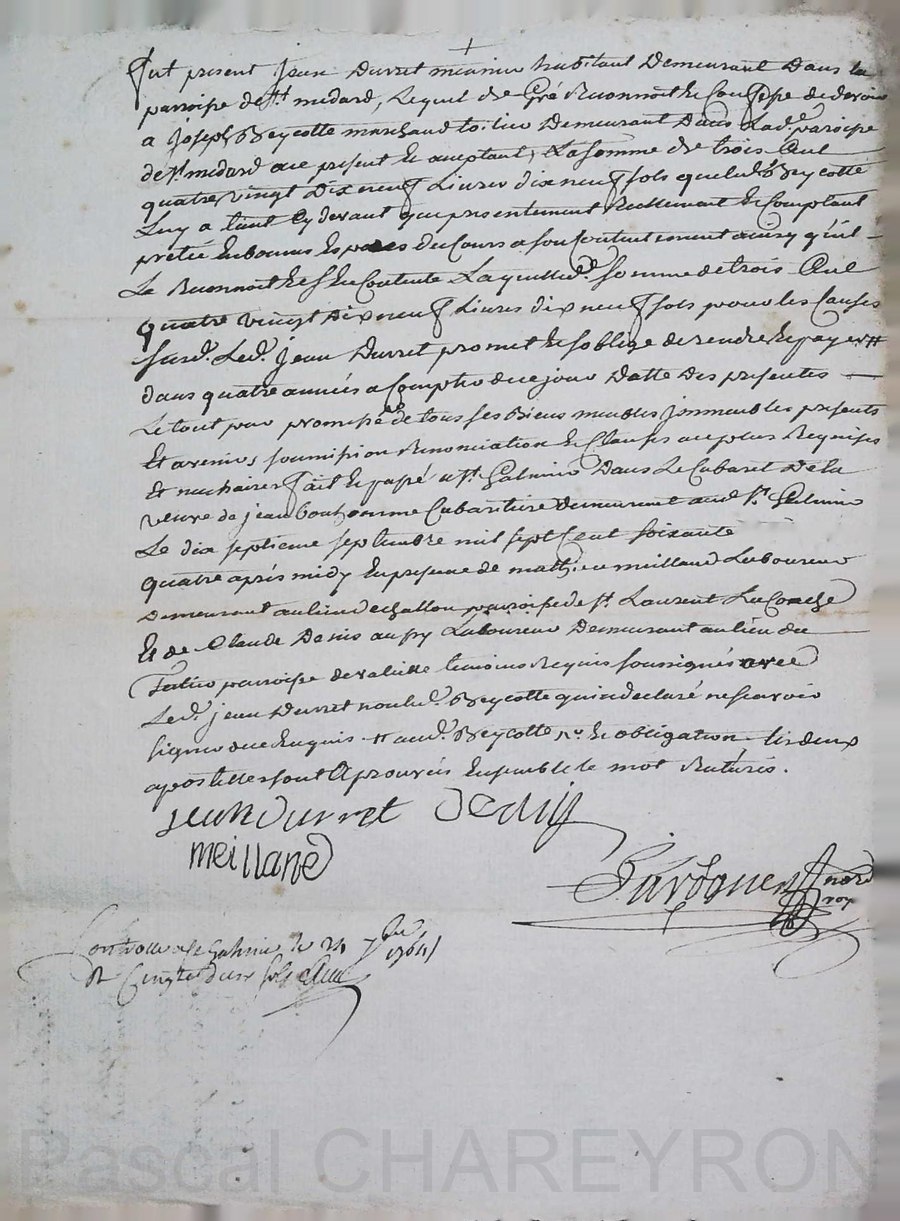 fut present Jean Durret meunier habitant Demeurant Dans la
parroisse de St medard, Lequel de Gré Reconnoit Et Confesse de devoir
a Joseph Beycotte marchand toilier Demeurant Dans Lade. paroisse
de St. medard ace present Et aceptant, La somme de trois Cent
quatre vingt Dix neuf Livres dix neuf sols que led. Beycotte
Luy a tant Cy devant que presentement Reellement Et Comptant
prétée En bonnes Especes du Cours a son Contentement ainsy qu'il
Le Reconnoit Et s'En Contente Laquelle de. somme de trois Cent
quatre vingt Dix neuf Livres dix neuf sols pour les Causes
susd. Led. jean Durret promet Et s'oblige de rendre Et payer #
dans quatre années a Compter de ce jour Datte Des presentes
Le tout par promesse de tous ses Biens meubles jmmeubles presents
Et avenir, soumission Renonciation Et Clauses au plus Requises
Et necessaires fait Et passé a St. Galmier Dans Le Cabaret De la
veuve de jean bonhomme Cabaretiere Demeurant aud St. Galmier
Le dix septieme septembre mil sept Cent soixante
quatre aprés midy En presence de mathieu meilland Laboureur
Demeurant au lieu de challon parroisse de St. Laurent La Conche
Et de Claude Denis aussy Laboureur Demeurant au lieu du
parroisse de valeille temoins Requis soussignés avec
Led. jean Durret non led. Beycotte qui a declaré ne scavoir
signer de ce Enquis # aud. Beycotte Et obligation les deux
apostilles sont Aprouvées Ensemble le mot Raturés.
jean durret Denis
meilland
Pardouen nore
roy
Controllé a St Galmier le 24 7bre 1764
Rt Cinquante deux sols
Pascal CHAREYRON